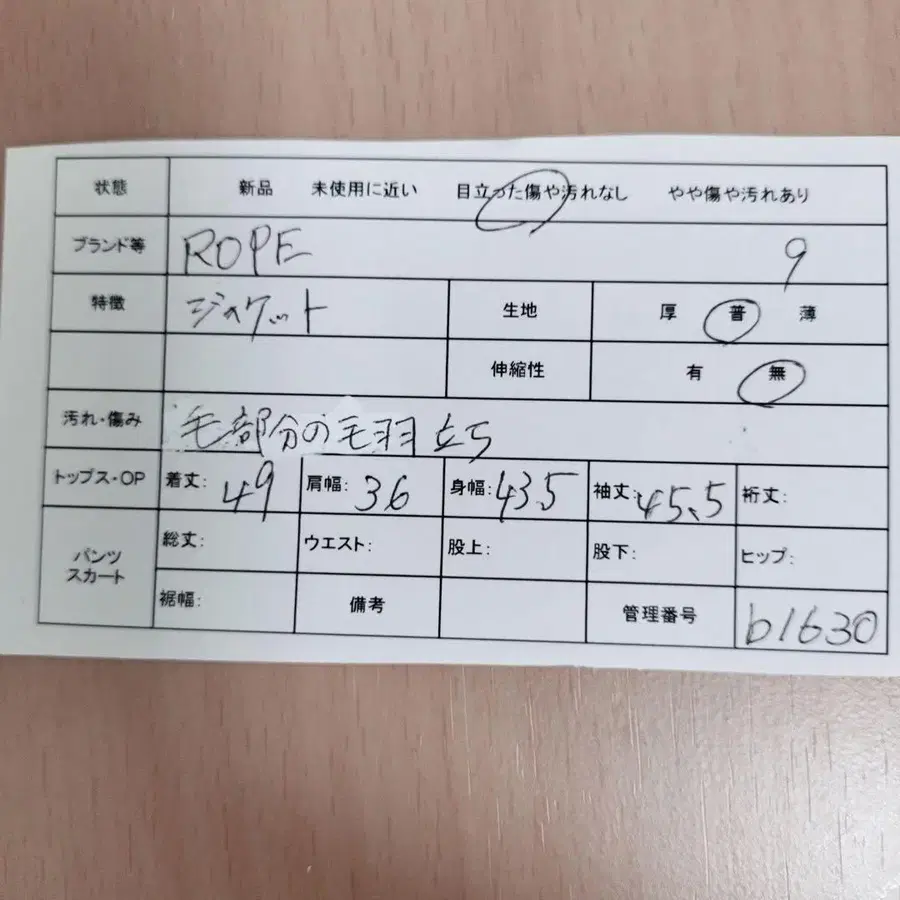 状態 新品 未使用に近い 目立った傷や汚れなし やや傷や汚れあり
ブランド等 ROPE 9
特徴 ジャケット 生地 厚 普 薄
伸縮性 有 無
汚れ・傷み 毛部分の毛羽立ち
トップス・OP 着丈: 49 肩幅: 36 身幅: 43.5 袖丈: 45.5 裄丈:
パンツ スカート 総丈: ウエスト: 股上: 股下: ヒップ:
裾幅: 備考 管理番号 b1630